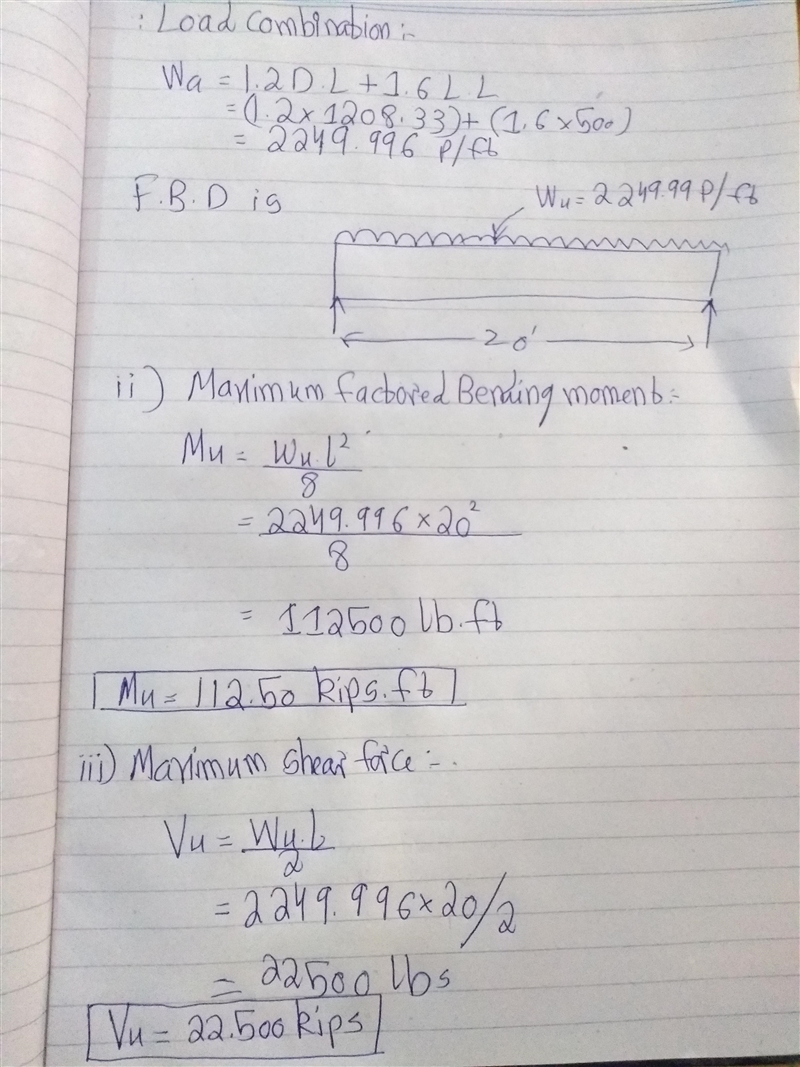 : Load Combination :-
Wa = 1.2 D.L + 1.6 L.L
= (1.2 x 1208.33) + (1.6 x 500)
= 2249.996 P/ft
F.B.D is
Wu = 2249.99 P/ft
20'
ii) Maximum factored Bending moment :-
Mu = Wu.l²/8
= 2249.996 x 20²/8
= 112500 lb.ft
Mu = 112.50 kips.ft
iii) Maximum shear force :-
Vu = Wu.l/2
= 2249.996 x 20/2
= 22500 lbs
Vu = 22.500 kips